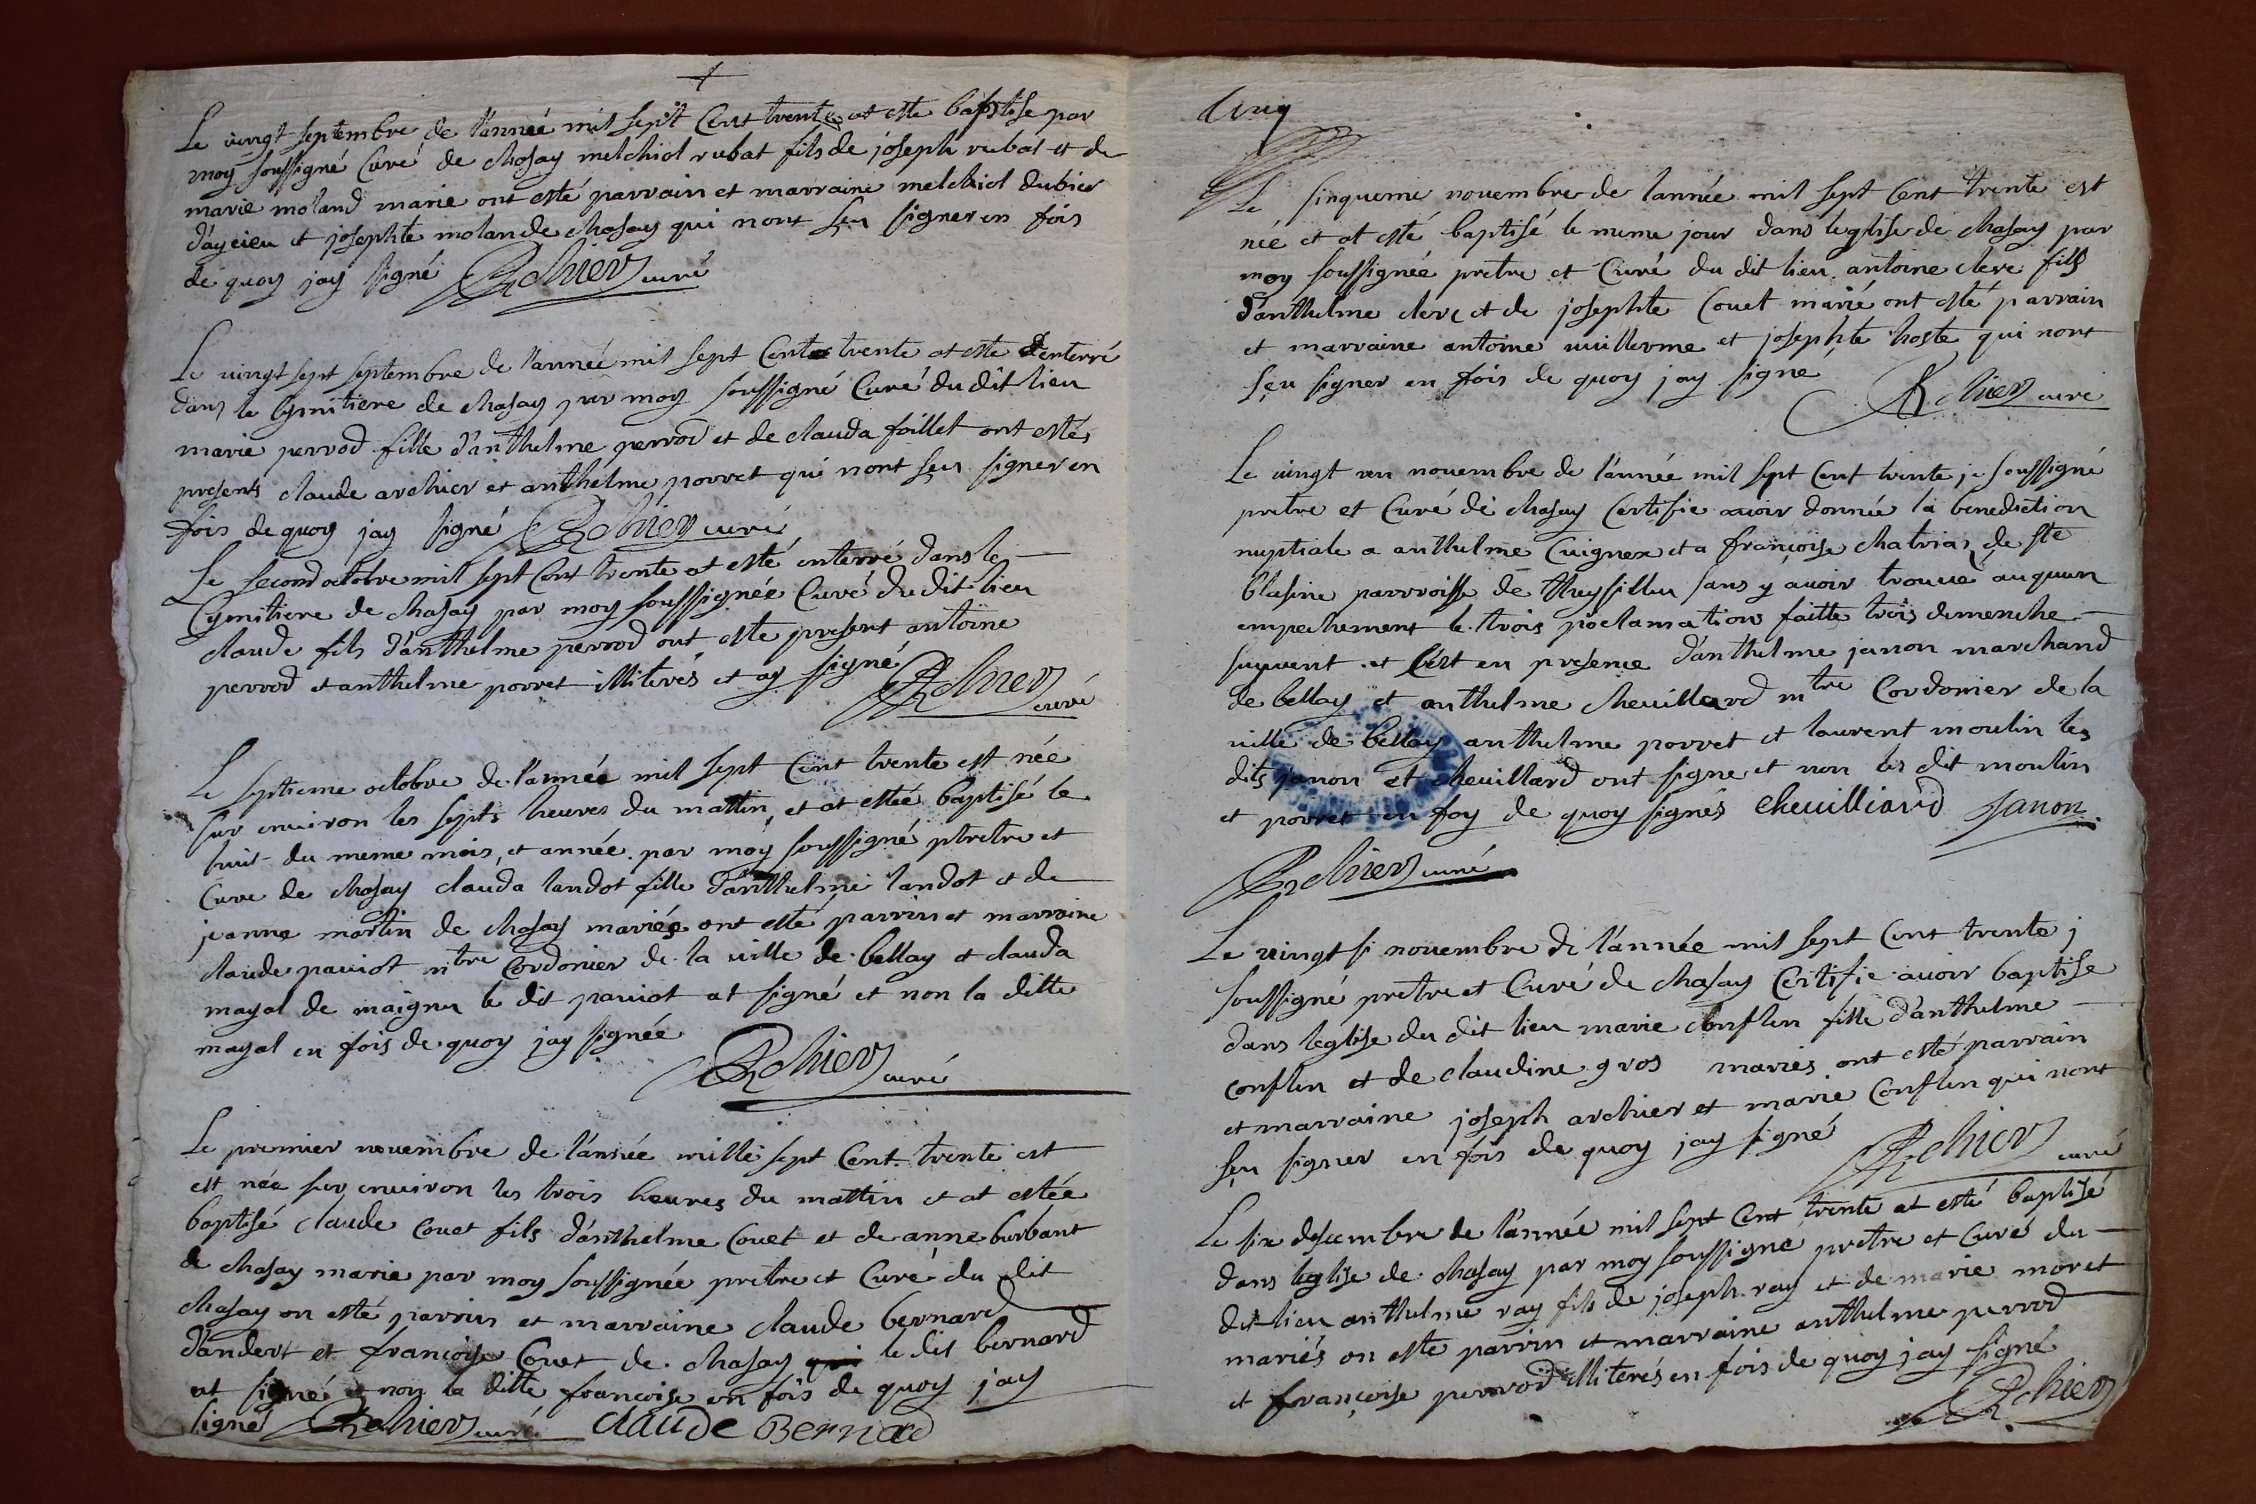 Le vingt septembre de l'année mil sept Cent trente at esté baptise par
moy soussigné Curé de chasay melchiol rubat fils de joseph rubat et de
marie moland marie ont esté parrain et marraine melchiol dubier
d'ayeieu et josephte molan de chasay qui nont seu signer en fois
de quoy jay signé Rchier curé
Le vingt sept septembre de l'année mil sept Cent trente at este enterré
dans le Cymitiere de chasay par moy soussigné Curé du dit lieu
marie perrod fille d'anthelme perrod et de clauda foillet ont estés
presents claude archier et anthelme porret qui nont seu signer en
fois de quoy jay signé Rchier curé
Le second octobre mil sept Cent trente at esté enterré dans le
Cymitiere de chasay par moy soussignée Curé du dit lieu
claude fils d'anthelme perrod ont este present antoine
perrod et anthelme porret illiterés et ay signé Rchier
curé
Le septieme octobre de l'année mil sept Cent trente est née
sur environ les septs heures du mattin et at estée baptisé le
huit du meme mois et année par moy soussigné ptretre et
Cure de chasay clauda landot fille d'anthelme landot et de
jeanne martin de chasay mariés ont esté parrin et marraine
claude paviot mtre Cordonier de la ville de bellay et clauda
mayal de maignu le dit paviot at signé et non la ditte
mayal en fois de quoy jay signée
Rchier curé
Le premier novembre de l'année mille sept Cent trente est
est née sur environ les trois heures du mattin et at estée
baptisé claude couet fils d'anthelme Couet et de anne burbant
de chasay marie par moy soussignée pretre et Curé du dit
chasay on esté parrin et marraine claude bernard
d'andert et françoise Couet de chasay le dit bernard
at signé et non la ditte françoise en fois de quoy jay
signé Rchier curé claude Bernard
Cinq
Le sinqueme novembre de lannée mil sept Cent trente est
née et at esté baptisé le meme jour dans leglise de chasay par
moy soussignée pretre et Curé du dit lieu antoine clerc fils
d'anthelme clerc et de josephte Couet marié ont esté parrain
et marraine antoine vuillerme et josephte hoste qui nont
seu signer en fois de quoy jay signé
Rchier curé
Le vingt un novembre de l'année mil sept Cent trente je soussigné
pretre et Curé de chasay Certifie avoir donnée la benediction
nuptiale a anthelme Cuignex et a françoise chatrian de ste
blasine parrroisse de Theysillieu sans y avoir trouvé auquun
empechement le trois proclamation faitte trois demenche
suyvent et C'est en presence d'anthelme janon marchand
de bellay et anthelme cheuillard mtre Cordonier de la
ville de bellay anthelme porret et laurent moulin les
dits janon et cheuillard ont signe et non les dit moulin
et porret en foy de quoy signés cheuilliard Janon
Rchier curé
Le vingt si novembre de l'année mil sept Cent trente j
soussigné pretre et Curé de chasay Certifie avoir baptise
dans leglise du dit lieu marie conflen fille d'anthelme
conflen et de claudine gros mariés ont esté parrain
et marraine joseph archier et marie Conflen qui nont
seu signer en fois de quoy jay signé
Rchier curé
Le six descembre de l'année mil sept Cent trente at esté baptisé
dans leglise de chasay par moy soussigne pretre et Curé du
dit lieu anthelme ray fils de joseph ray et de marie moret
mariés on este parrin et marraine anthelme perrod
et françoise perrod illiterés en fois de quoy jay signé
Rchier